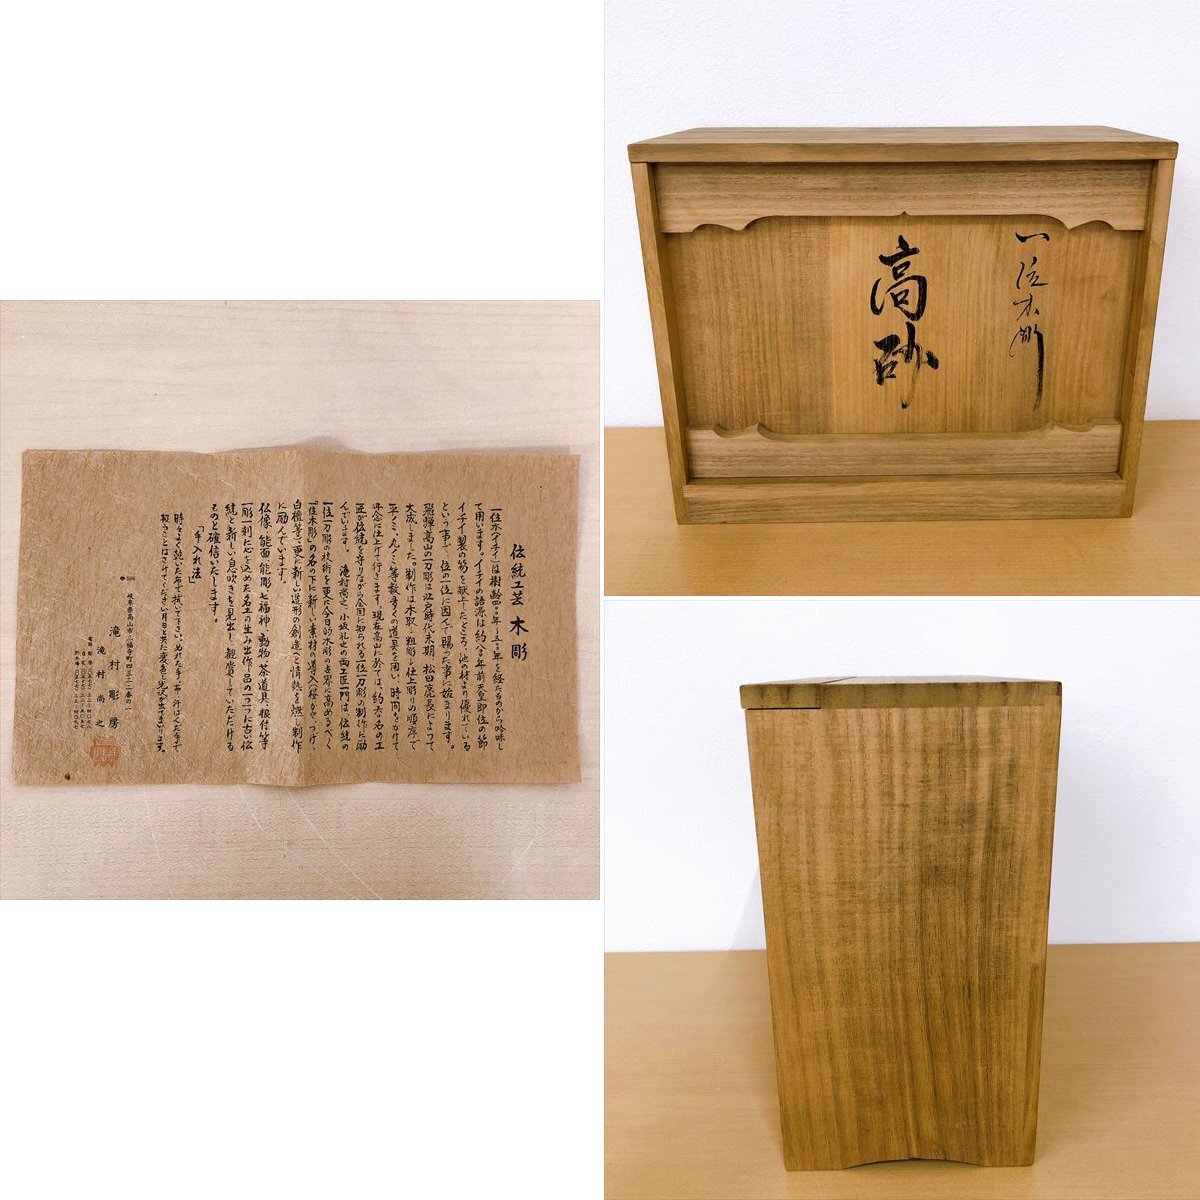 伝統工芸 木彫
一位木(イチイ)は樹齢四百年〜五百年を経たものから吟味し
て用います。イチイの語源は約八百年前天皇即位の節
イチイ製の笏を献上したところ、他の材より優れている
という事で、位の一位に因んで賜った事に始まります。
飛騨高山の一刀彫は江戸時代末期 松田亮長によって
大成しました。制作は木取・粗彫・仕上彫りの順序で
平ノミ、丸ノミ等数多くの道具を用い、時間をかけて
丹念に仕上げて行きます。現在高山に於ては、約六十名の工
匠が伝統を守りながら全国に知られる一位一刀彫の制作に励
んでいます。滝村尚之、小坂礼之の両工匠一門は伝統の
一位一刀彫の技術を更に今日的木彫の世界に高めるべく
「一位木彫」の名の下に新しい素材の導入(桜、かつら、つげ、
白檀等)で更に新しい造形の創造へと情熱を燃し制作
に励んでいます。
仏像、能面、能彫、七福神、動物、茶道具、根付等
一彫一刻に心を込めた名工の生み出す作品の一つ一つに古い伝
統と新しい息吹きを見出し、観賞していただける
ものと確信いたします。
「手入れ法」
時々よく乾いた布で拭いて下さい。ぬれた手、布、汗ばんだ手で
扱うことはさけてください。月日と共に変色し光沢が出てまいります。
●506
岐阜県高山市三福寺町四三二一番の一
滝村彫房
滝村尚之
高砂
一位木彫